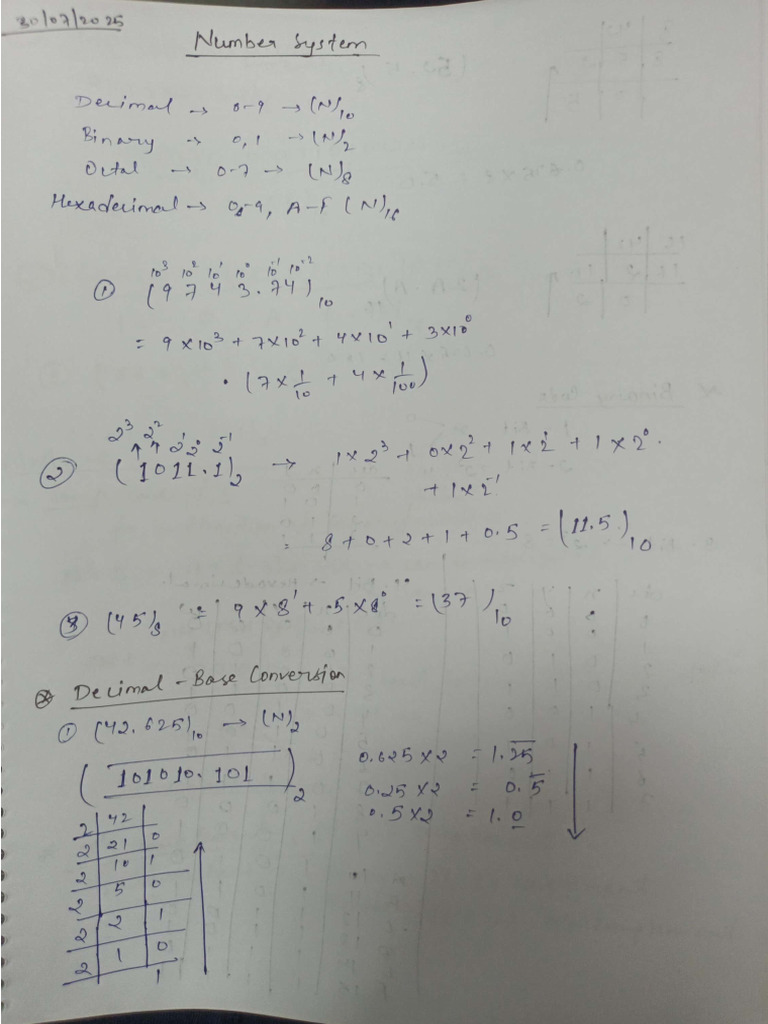 30/07/2025
Number System
Decimal → 0-9 → (N)₁₀
Binary → 0,1 → (N)₂
Octal → 0-7 → (N)₈
Hexadecimal → 0-9, A-F (N)₁₆
10³ 10² 10¹ 10⁰ 10⁻¹ 10⁻²
① (9 7 4 3.74)₁₀
= 9×10³ + 7×10² + 4×10¹ + 3×10⁰
. (7×1/10 + 4×1/100)
2³ 2² 2¹ 2⁰ 2⁻¹
② (1011.1)₂ → 1×2³ + 0×2² + 1×2¹ + 1×2⁰.
+ 1×2⁻¹
= 8+0+2+1+0.5 = (11.5)₁₀
③ (45)₈ = 4×8¹ + 5×8⁰ = (37)₁₀
Decimal - Base Conversion
① (42.625)₁₀ → (N)₂
(101010.101)₂
0.625×2 = 1.25
0.25×2 = 0.5
0.5×2 = 1.0
2 42
2 21 0
2 10 1
2 5 0
2 2 1
2 1 0
1